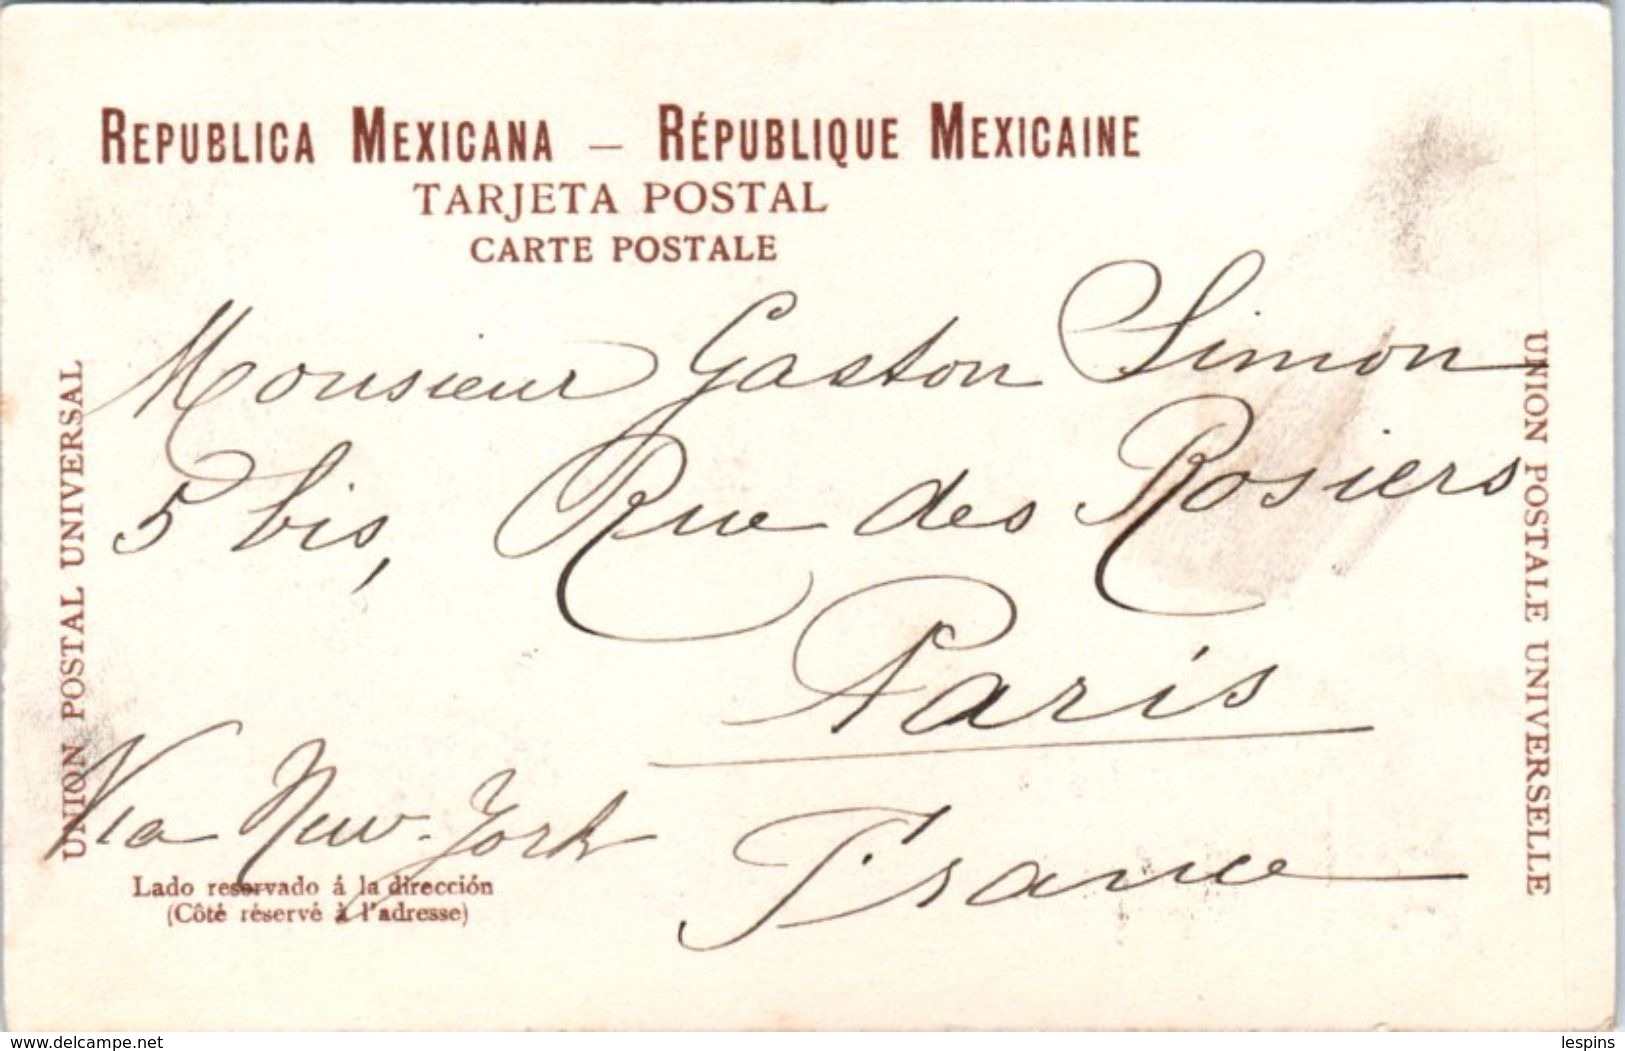 REPUBLICA MEXICANA — RÉPUBLIQUE MEXICAINE
TARJETA POSTAL
CARTE POSTALE
UNION POSTAL UNIVERSAL
Monsieur Gaston Simon
5 bis, Rue des Rosiers
Paris
Via New-York
France
Lado reservado á la dirección
(Côté réservé à l'adresse)
UNION POSTALE UNIVERSELLE
www.delcampe.net
lespins